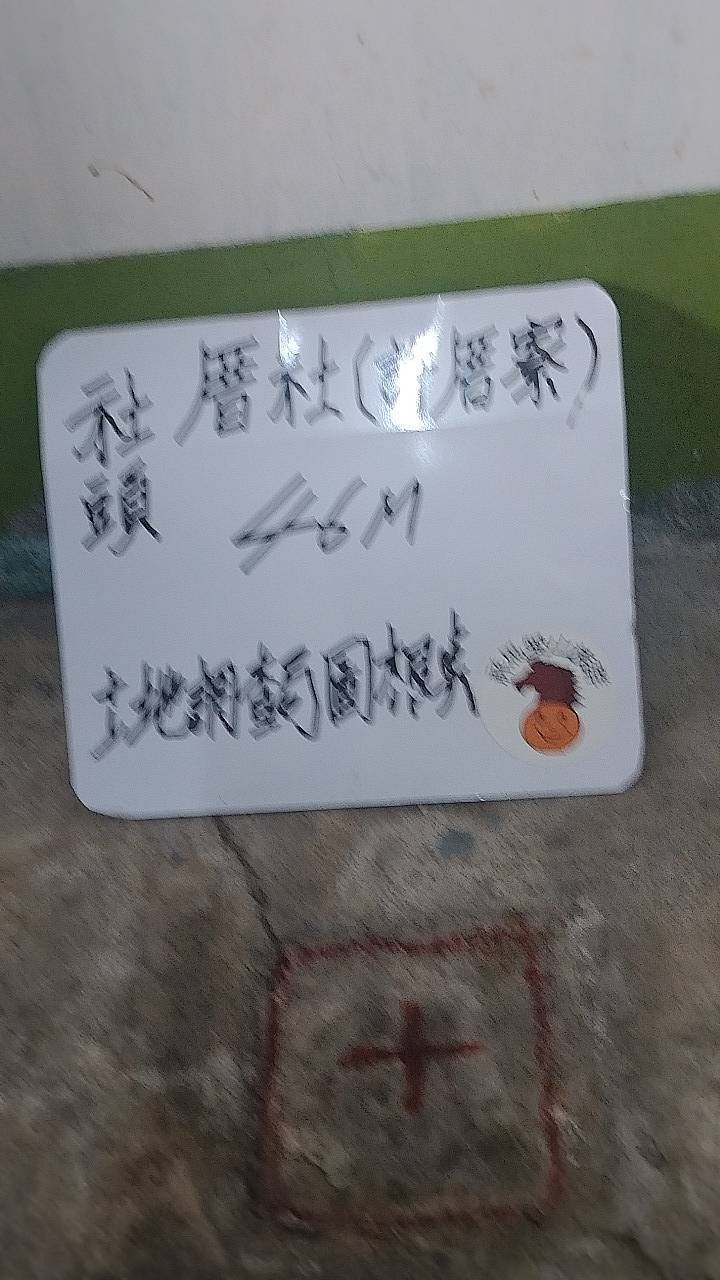 社頭
厝社(厝寮)
46M
土地調查圖根点